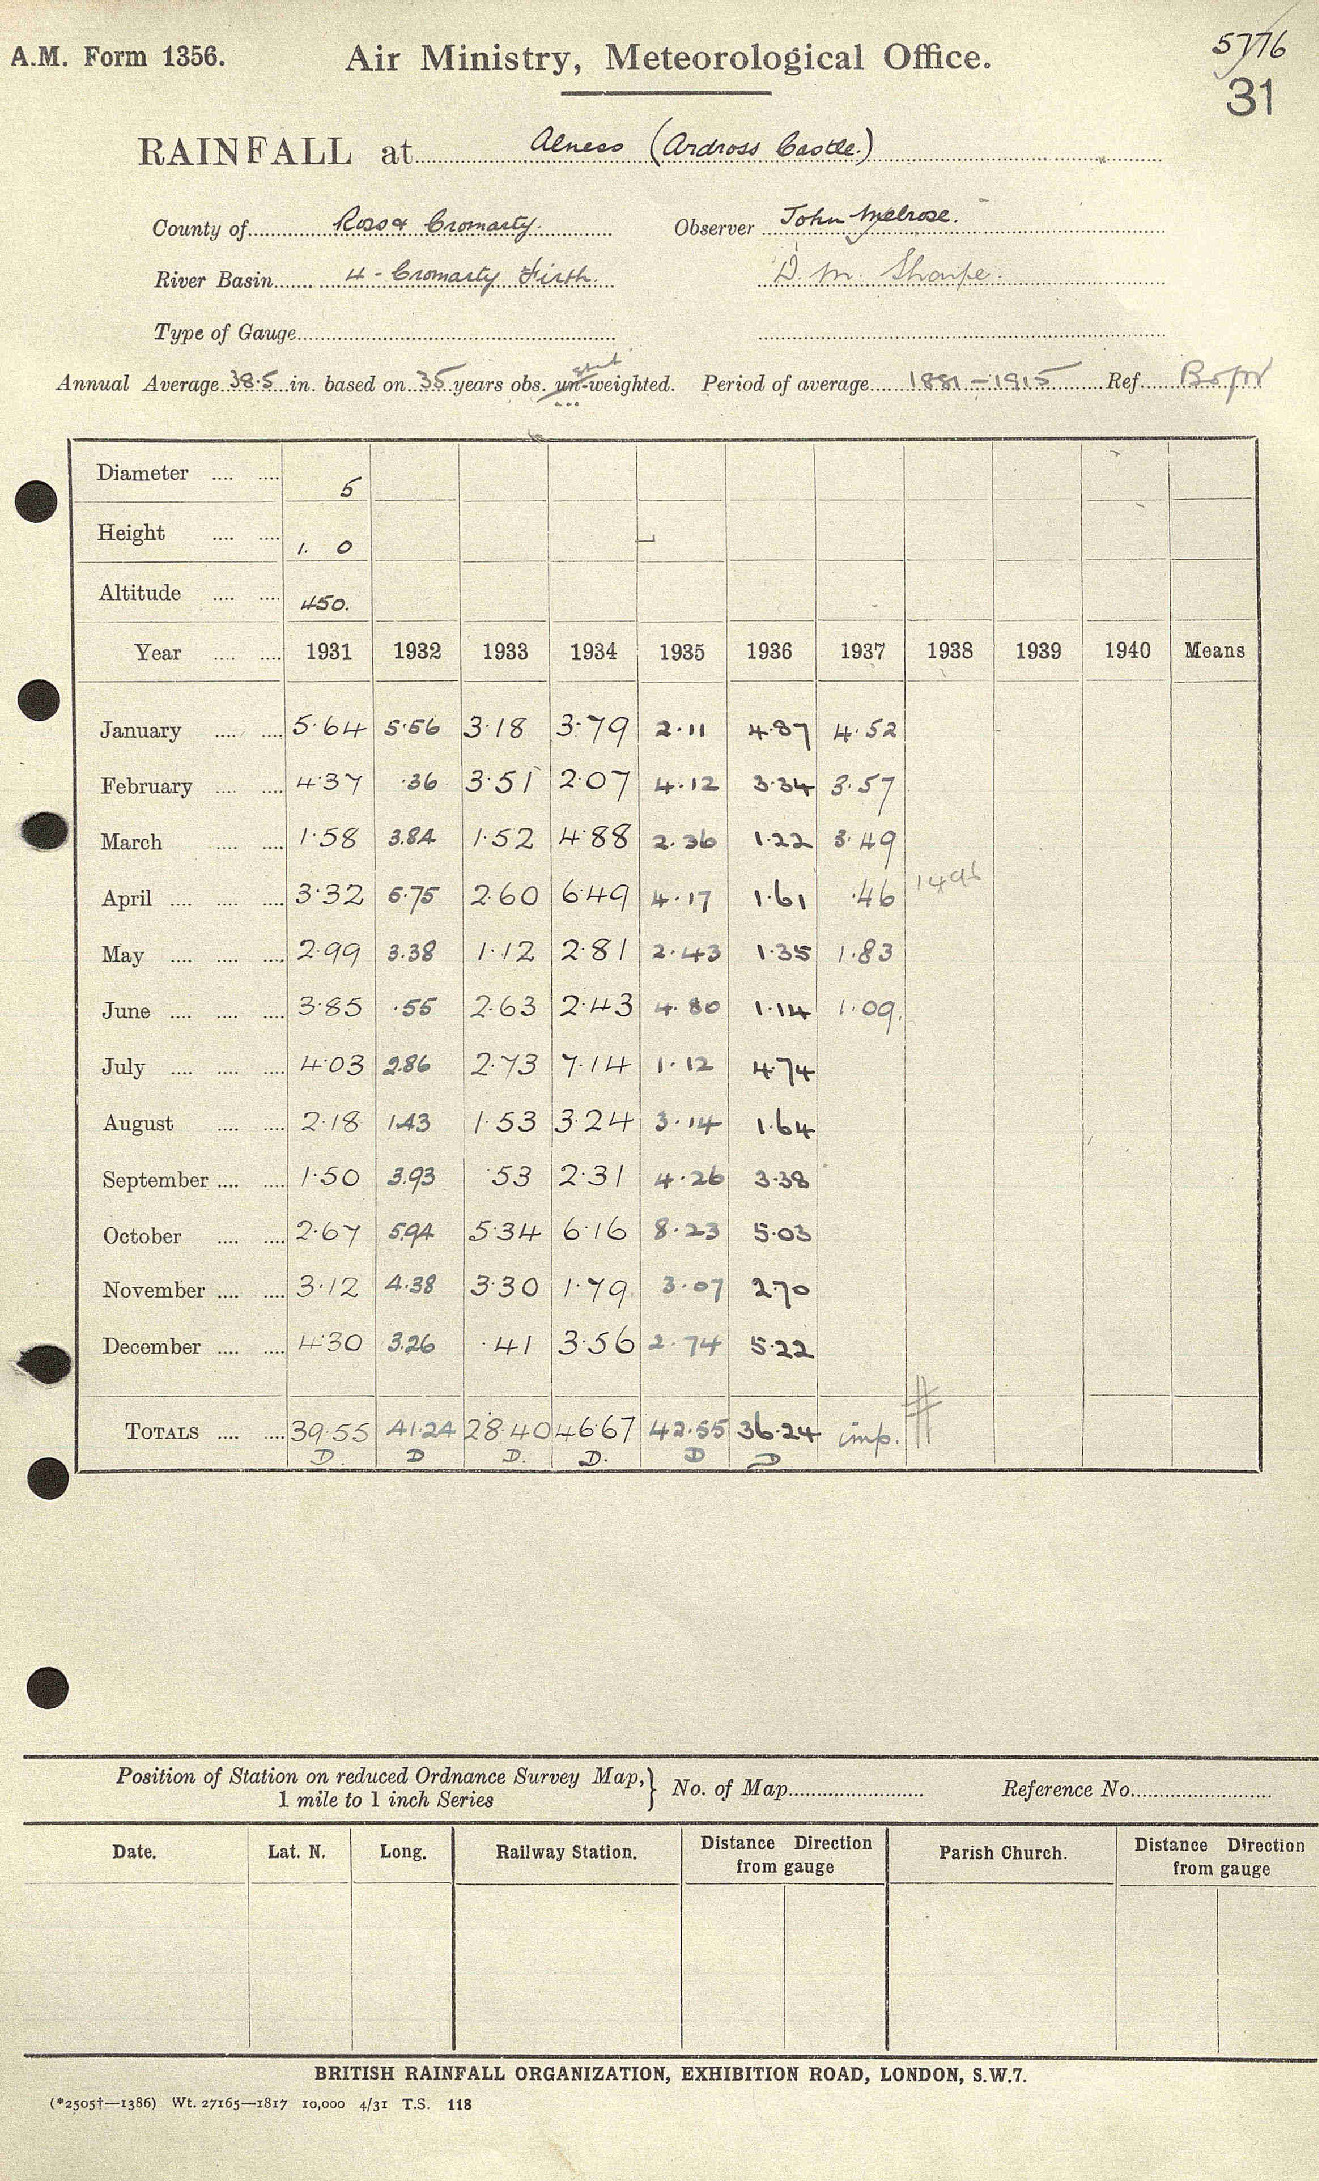 5776
A.M. Form 1356. Air Ministry, Meteorological Office.
31
RAINFALL at Alness (Ardross Castle.)
County of Ross & Cromarty. Observer John Melrose.
River Basin 4 - Cromarty Firth. D. M. Sharpe.
Type of Gauge
Annual Average 38.5 in. based on 35 years obs. un-weighted. Period of average 1881-1915 Ref.
Diameter 5
Height 1. 0
Altitude 450.
Year 1931 1932 1933 1934 1935 1936 1937 1938 1939 1940 Means
January 5.64 5.56 3.18 3.79 2.11 4.87 4.52
February 4.37 .36 3.51 2.07 4.12 3.34 3.57
March 1.58 3.84 1.52 4.88 2.36 1.22 3.49
April 3.32 5.75 2.60 6.49 4.17 1.61 .46 1496
May 2.99 3.38 1.12 2.81 2.43 1.35 1.83
June 3.85 .55 2.63 2.43 4.80 1.14 1.09.
July 4.03 2.86 2.73 7.14 1.12 4.74
August 2.18 1.43 1.53 3.24 3.14 1.64
September 1.50 3.93 .53 2.31 4.26 3.38
October 2.67 5.94 5.34 6.16 8.23 5.03
November 3.12 4.38 3.30 1.79 3.07 2.70
December 4.30 3.26 .41 3.56 2.74 5.22
TOTALS 39.55 41.24 28.40 46.67 42.55 36.24 imp. #
D. D D. D. D D
Position of Station on reduced Ordnance Survey Map, } No. of Map Reference No.
1 mile to 1 inch Series
Date. Lat. N. Long. Railway Station. Distance Direction from gauge Parish Church. Distance Direction from gauge
BRITISH RAINFALL ORGANIZATION, EXHIBITION ROAD, LONDON, S.W.7.
(*2505†—1386) Wt. 27165—1817 10,000 4/31 T.S. 118